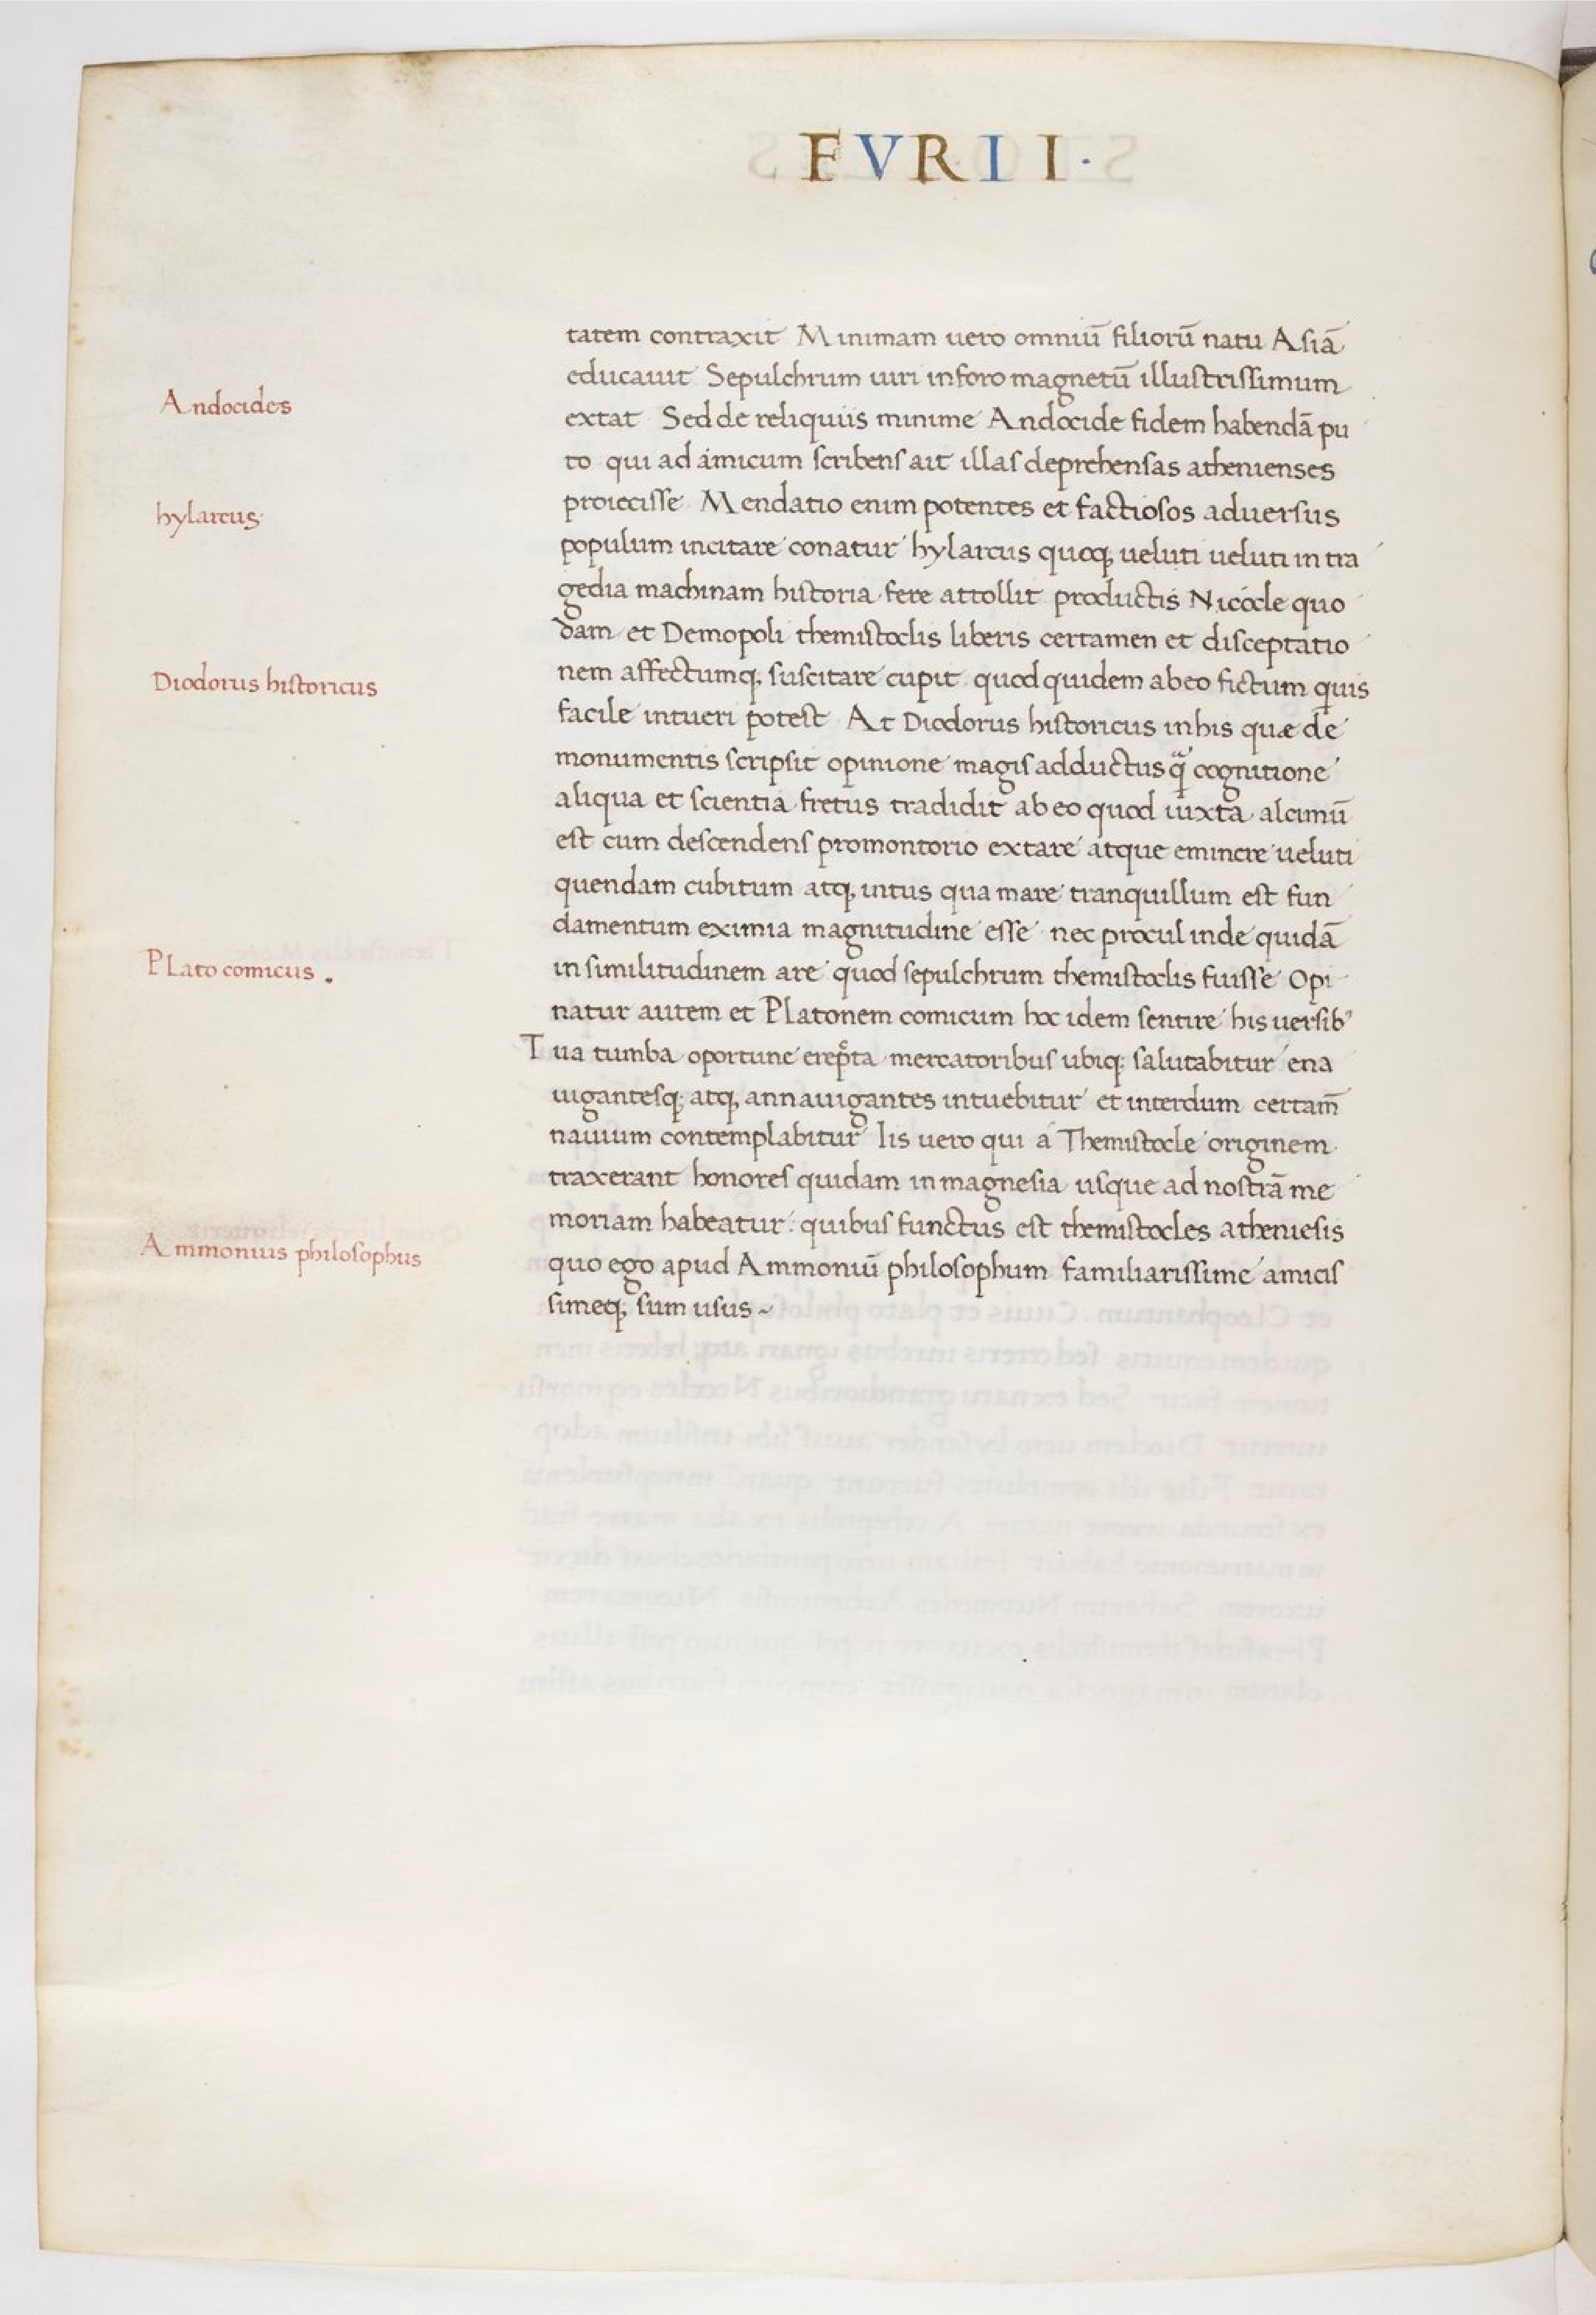 FVRII·
tatem contraxit Minimam uero omniū filiorū natu Asiā
educauit Sepulchrum uiri in foro magnetū illustrissimum
Andocides
extat Sed de reliquiis minime Andocide fidem habendā pu
to qui ad amicum scribens ait illas deprehensas athenienses
hylarcus
proiecisse Mendatio enim potentes et factiosos aduersus
populum incitare conatur hylarcus quoq; ueluti ueluti in tra
gedia machinam historia fere attollit productis Nicocle quo
dam et Demopoli themistoclis liberis certamen et disceptatio
Diodorus historicus
nem affectumq; suscitare cupit quod quidem ab eo fictum quis
facile intueri potest At Diodorus historicus in his quæ de
monumentis scripsit opinione magis adductus q̄ᵃ cognitione
aliqua et scientia fretus tradidit ab eo quod iuxta alcimū
est cum descendens promontorio extare atque eminere ueluti
quendam cubitum atq; intus qua mare tranquillum est fun
damentum eximia magnitudine esse nec procul inde quidā
Plato comicus .
in similitudinem are quod sepulchrum themistoclis fuisse Opi
natur autem et Platonem comicum hoc idem sentire his uersib'
Tua tumba oportune mercatoribus ubiq; salutabitur ena
uigantesq; atq; annauigantes intuebitur et interdum certam̄
nauium contemplabitur Iis uero qui a Themistocle originem
traxerant honores quidam in magnesia usque ad nostrā me
moriam habeatur: quibus functus est themistocles atheniesis
Ammonius philosophus
quo ego apud Ammoniū philosophum familiarissime amicis
simeq; sum usus ~